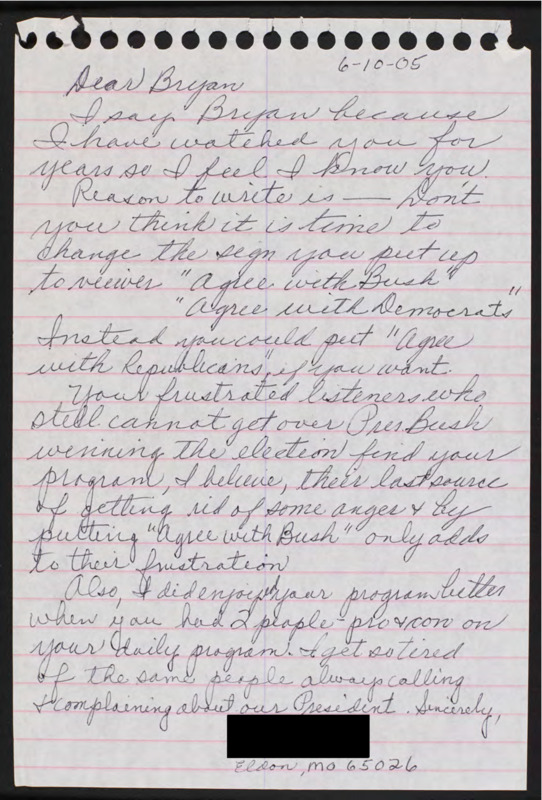 6-10-05
Dear Bryan
I say Bryan because
I have watched you for
years so I feel I know you.
Reason to write is — Don't
you think it is time to
change the sign you put up
to viewer "Agree with Bush"
"Agree with Democrats"
Instead you could put "Agree
with Republicans", if you want.
Your frustrated listeners who
still cannot get over Pres Bush
winning the election find your
program, I believe, their last source
of getting rid of some anger & by
putting "Agree with Bush" only adds
to their frustration
Also, I did enjoy your program better
when you had 2 people - pro & con on
your daily program. I get so tired
of the same people always calling
& complaining about our President. Sincerely,
Eldon, MO 65026